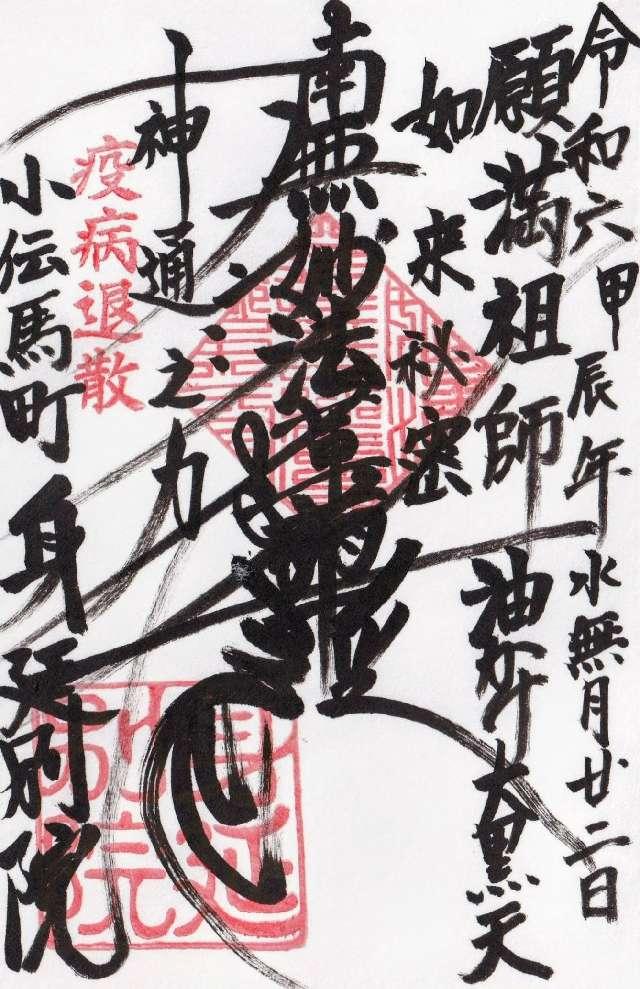 令和六甲辰年 水無月廿二日
願満祖師 油かけ大黒天
如来秘密
南無妙法蓮華経
神通之力
疫病退散
小伝馬町 身延別院
身延別院